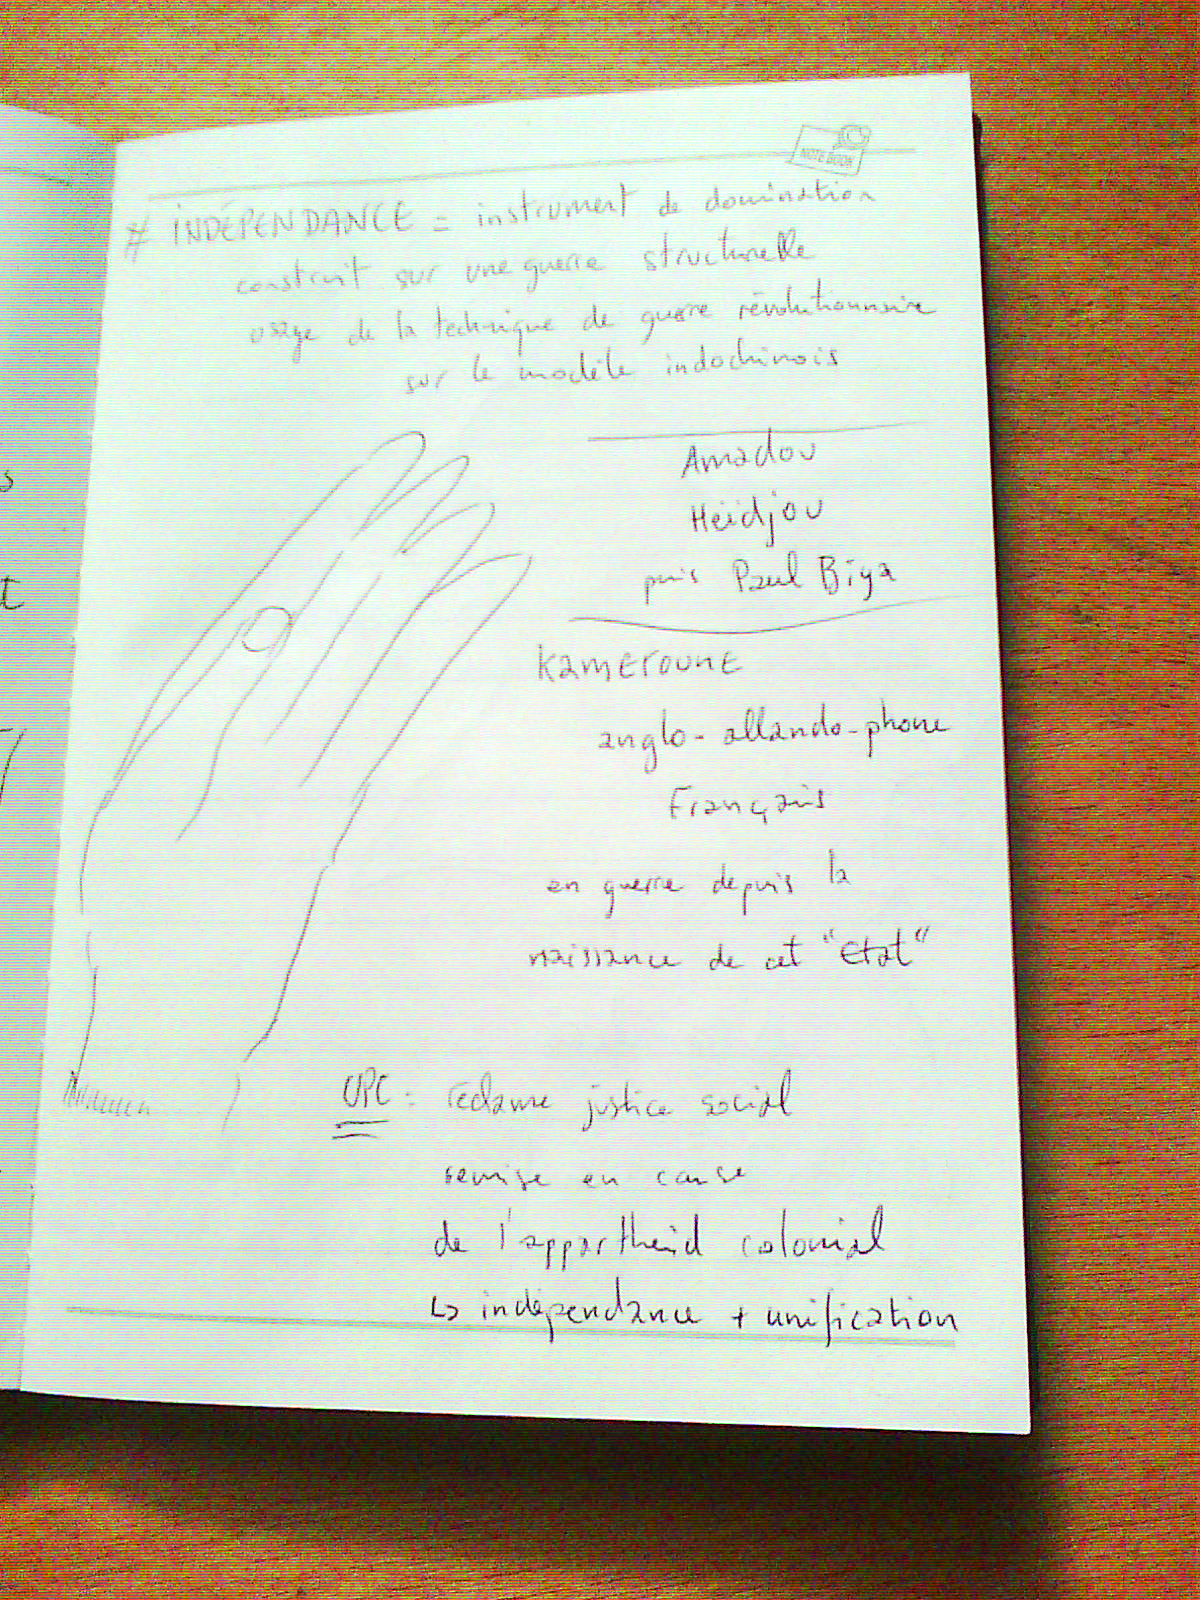 NOTE BOOK
# INDÉPENDANCE = instrument de domination
construit sur une guerre structurelle
usage de la technique de guerre révolutionnaire
sur le modèle indochinois
Amadou
Heïdjou
puis Paul Biya
KAMEROUNE
anglo-allando-phone
Français
en guerre depuis la
naissance de cet "Etat"
UPC : réclame justice social
remise en cause
de l'appartheid colonial
↳ indépendance + unification